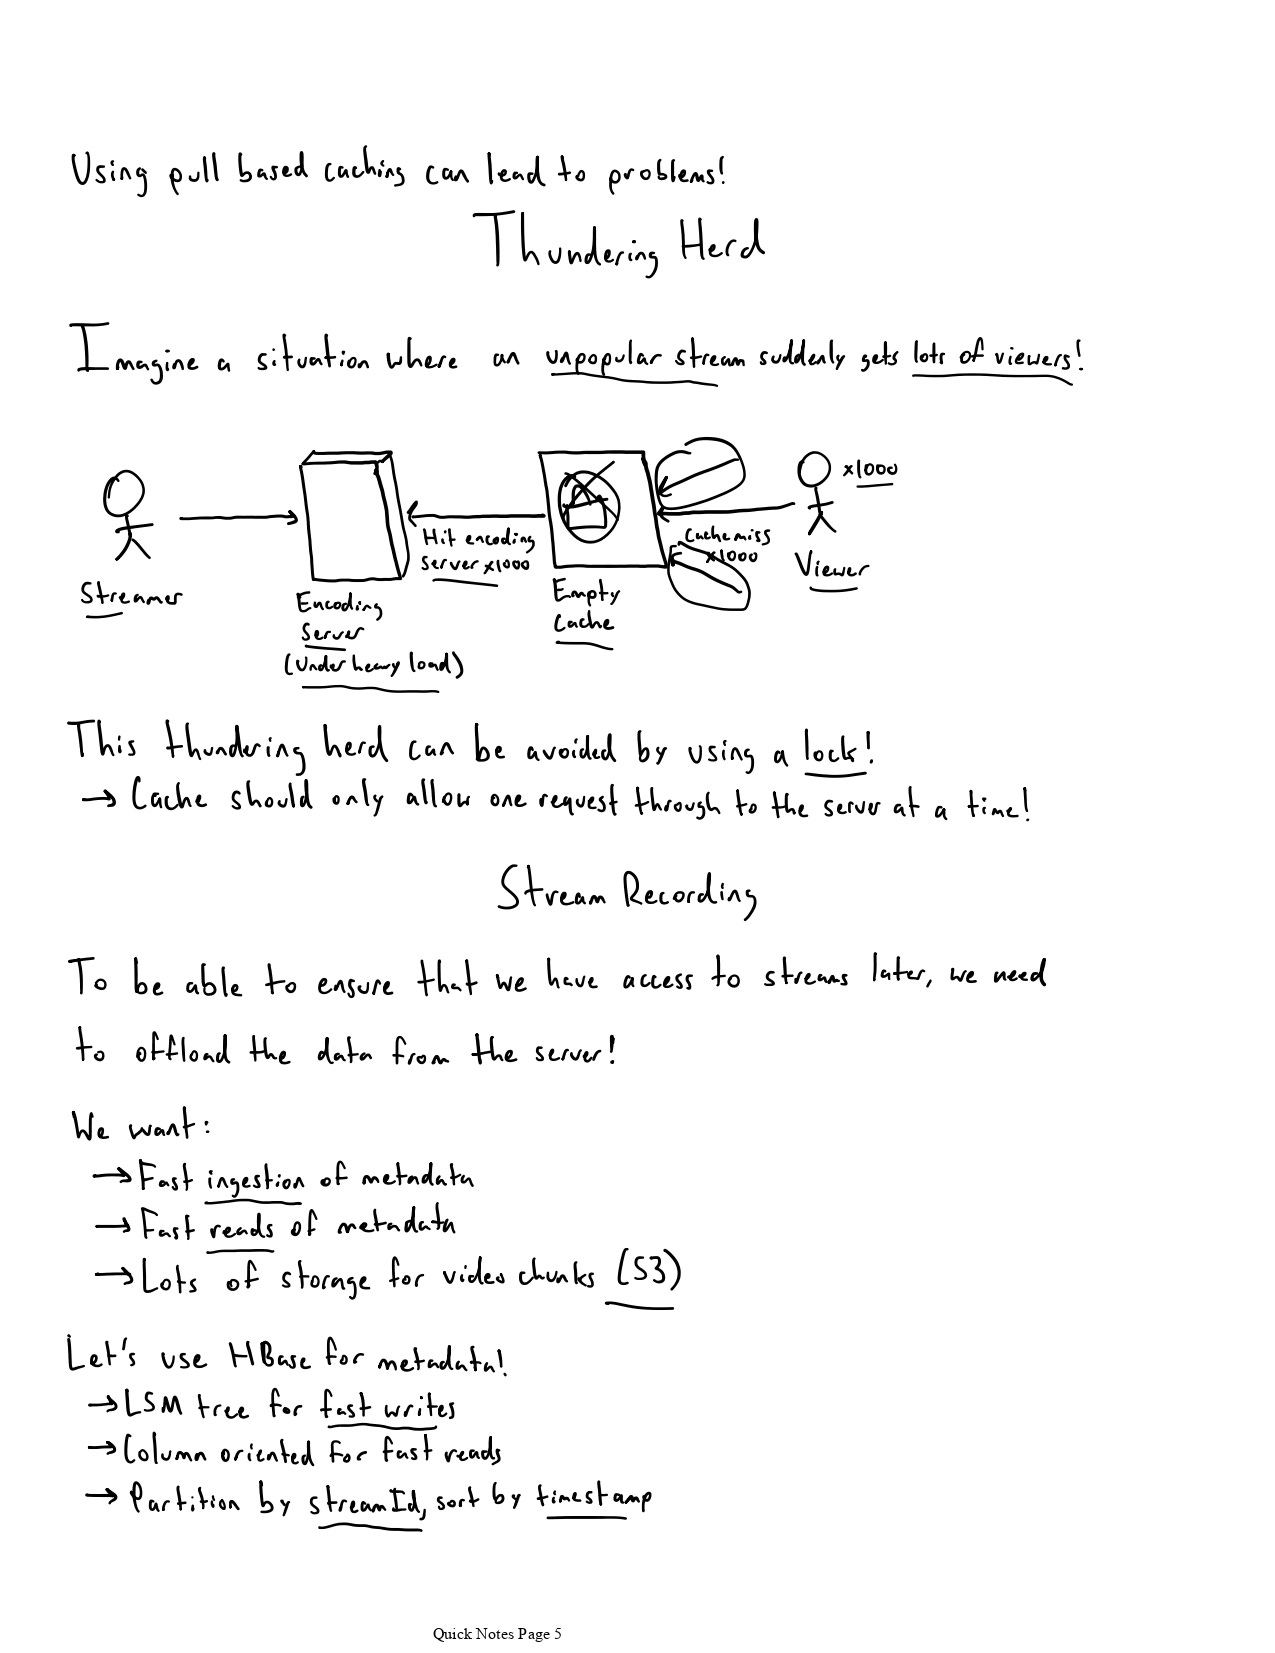 Using pull based caching can lead to problems!
Thundering Herd
Imagine a situation where an unpopular stream suddenly gets lots of viewers!
x1000
Hit encoding
Server x1000
Cache miss
x1000
Streamer
Encoding
Server
(Under heavy load)
Empty
Cache
Viewer
This thundering herd can be avoided by using a lock!
→ Cache should only allow one request through to the server at a time!
Stream Recording
To be able to ensure that we have access to streams later, we need
to offload the data from the server!
We want:
→ Fast ingestion of metadata
→ Fast reads of metadata
→ Lots of storage for video chunks (S3)
Let's use HBase for metadata!
→ LSM tree for fast writes
→ Column oriented for fast reads
→ Partition by streamId, sort by timestamp
Quick Notes Page 5